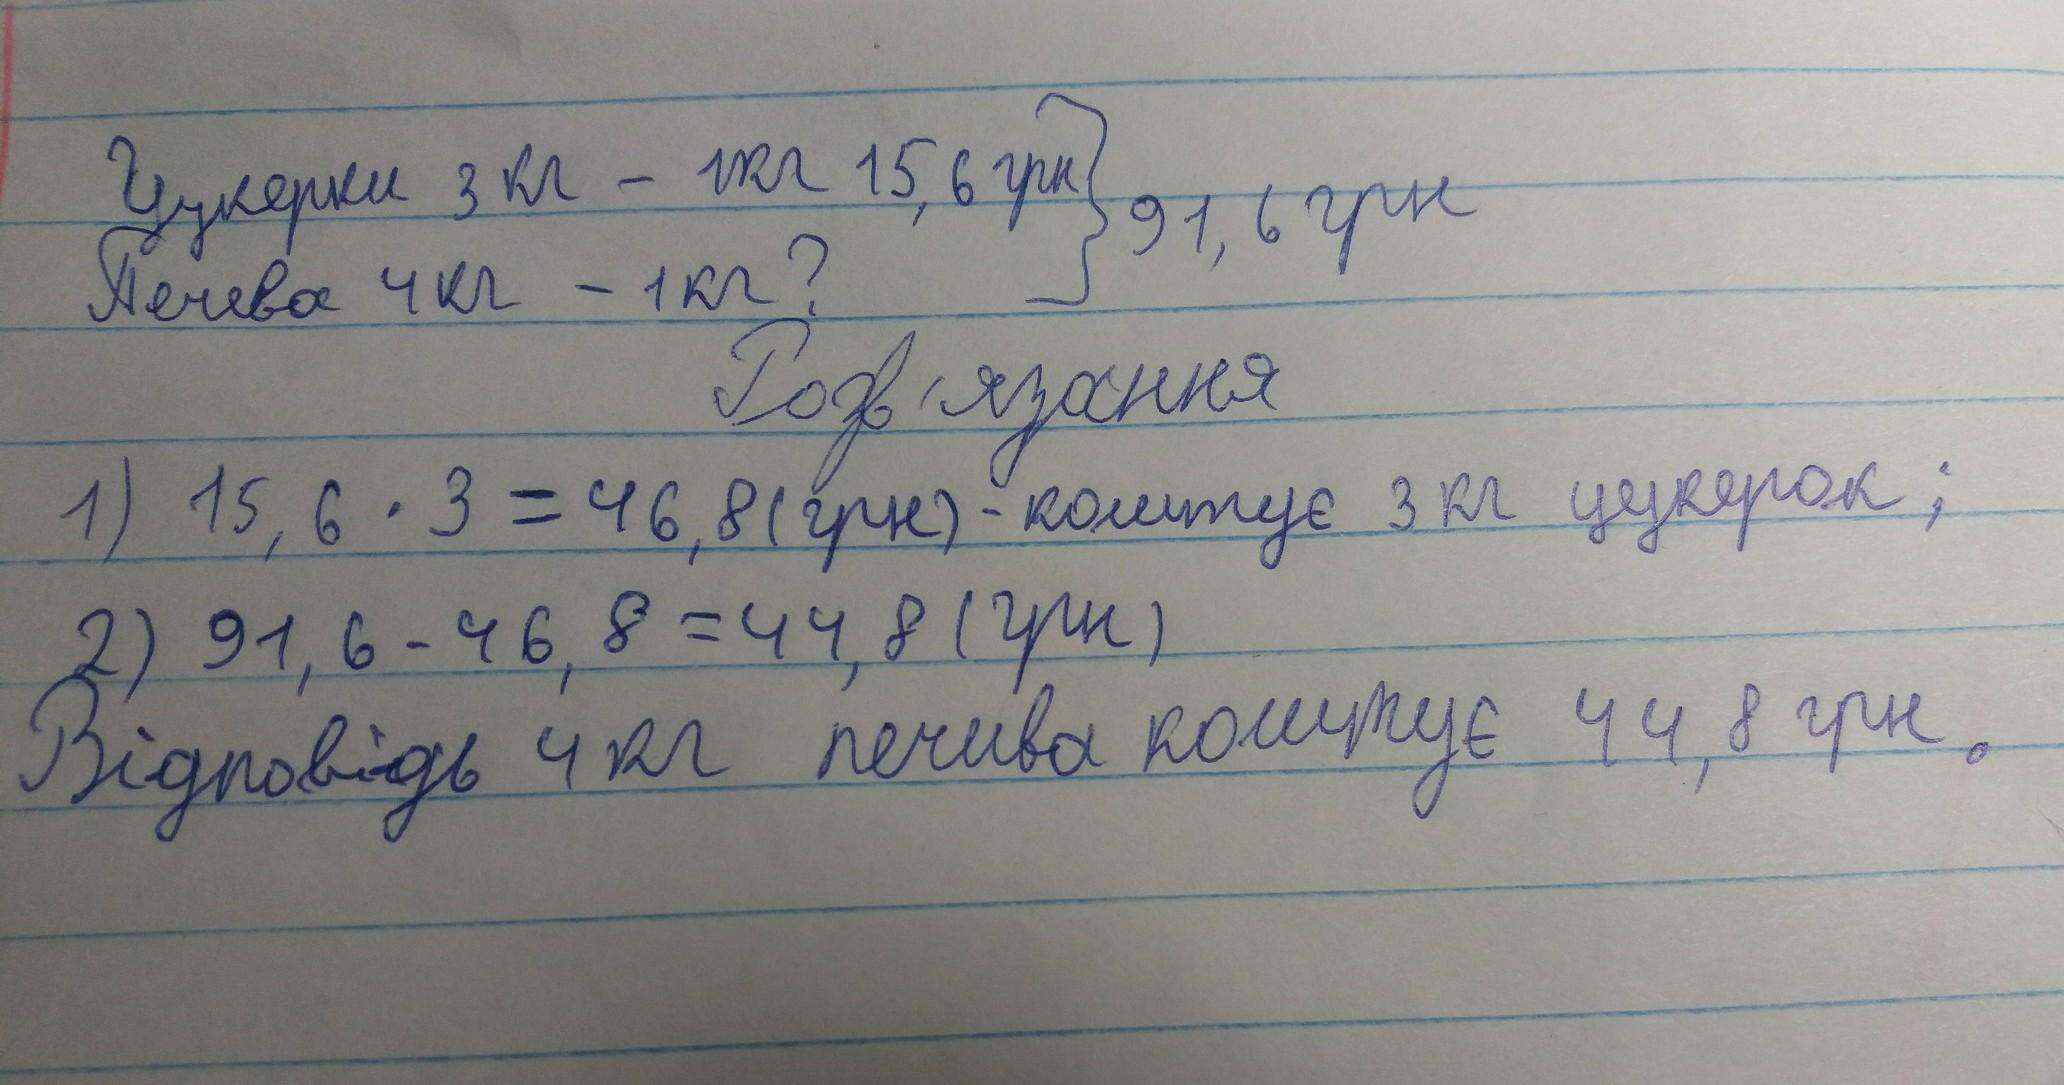 Цукерки 3 кг - 1кг 15,6 грн } 91,6 грн
Печева 4кг - 1кг?
Розв'язання
1) 15,6 · 3 = 46,8(грн) - коштує 3 кг цукерок;
2) 91,6 - 46,8 = 44,8 (грн)
Відповідь 4 кг печива коштує 44,8 грн.